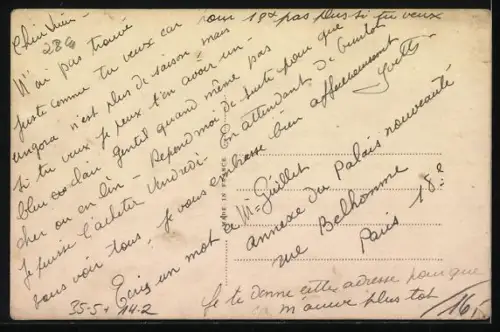 pour 18x pas plus si tu veux
Chère Mimi -
28G
N'ai pas trouvé
juste comme tu veux car
angora n'est plus de saison mais
si tu veux je peux t'en avoir un
bleu clair gentil quand même pas
cher ou en lin - Répond moi de suite pour que
je puisse l'acheter vendredi. En attendant de
vous voir tous, je vous embrasse bien affectueusement
Yvette
Ecris un mot à Mme Guillet
annexe du Palais nouveauté
rue Belhomme
Paris 18e
je te donne cette adresse pour que
m'arrive plus tôt
35-5+ 14-2
16
MADE IN FRANCE